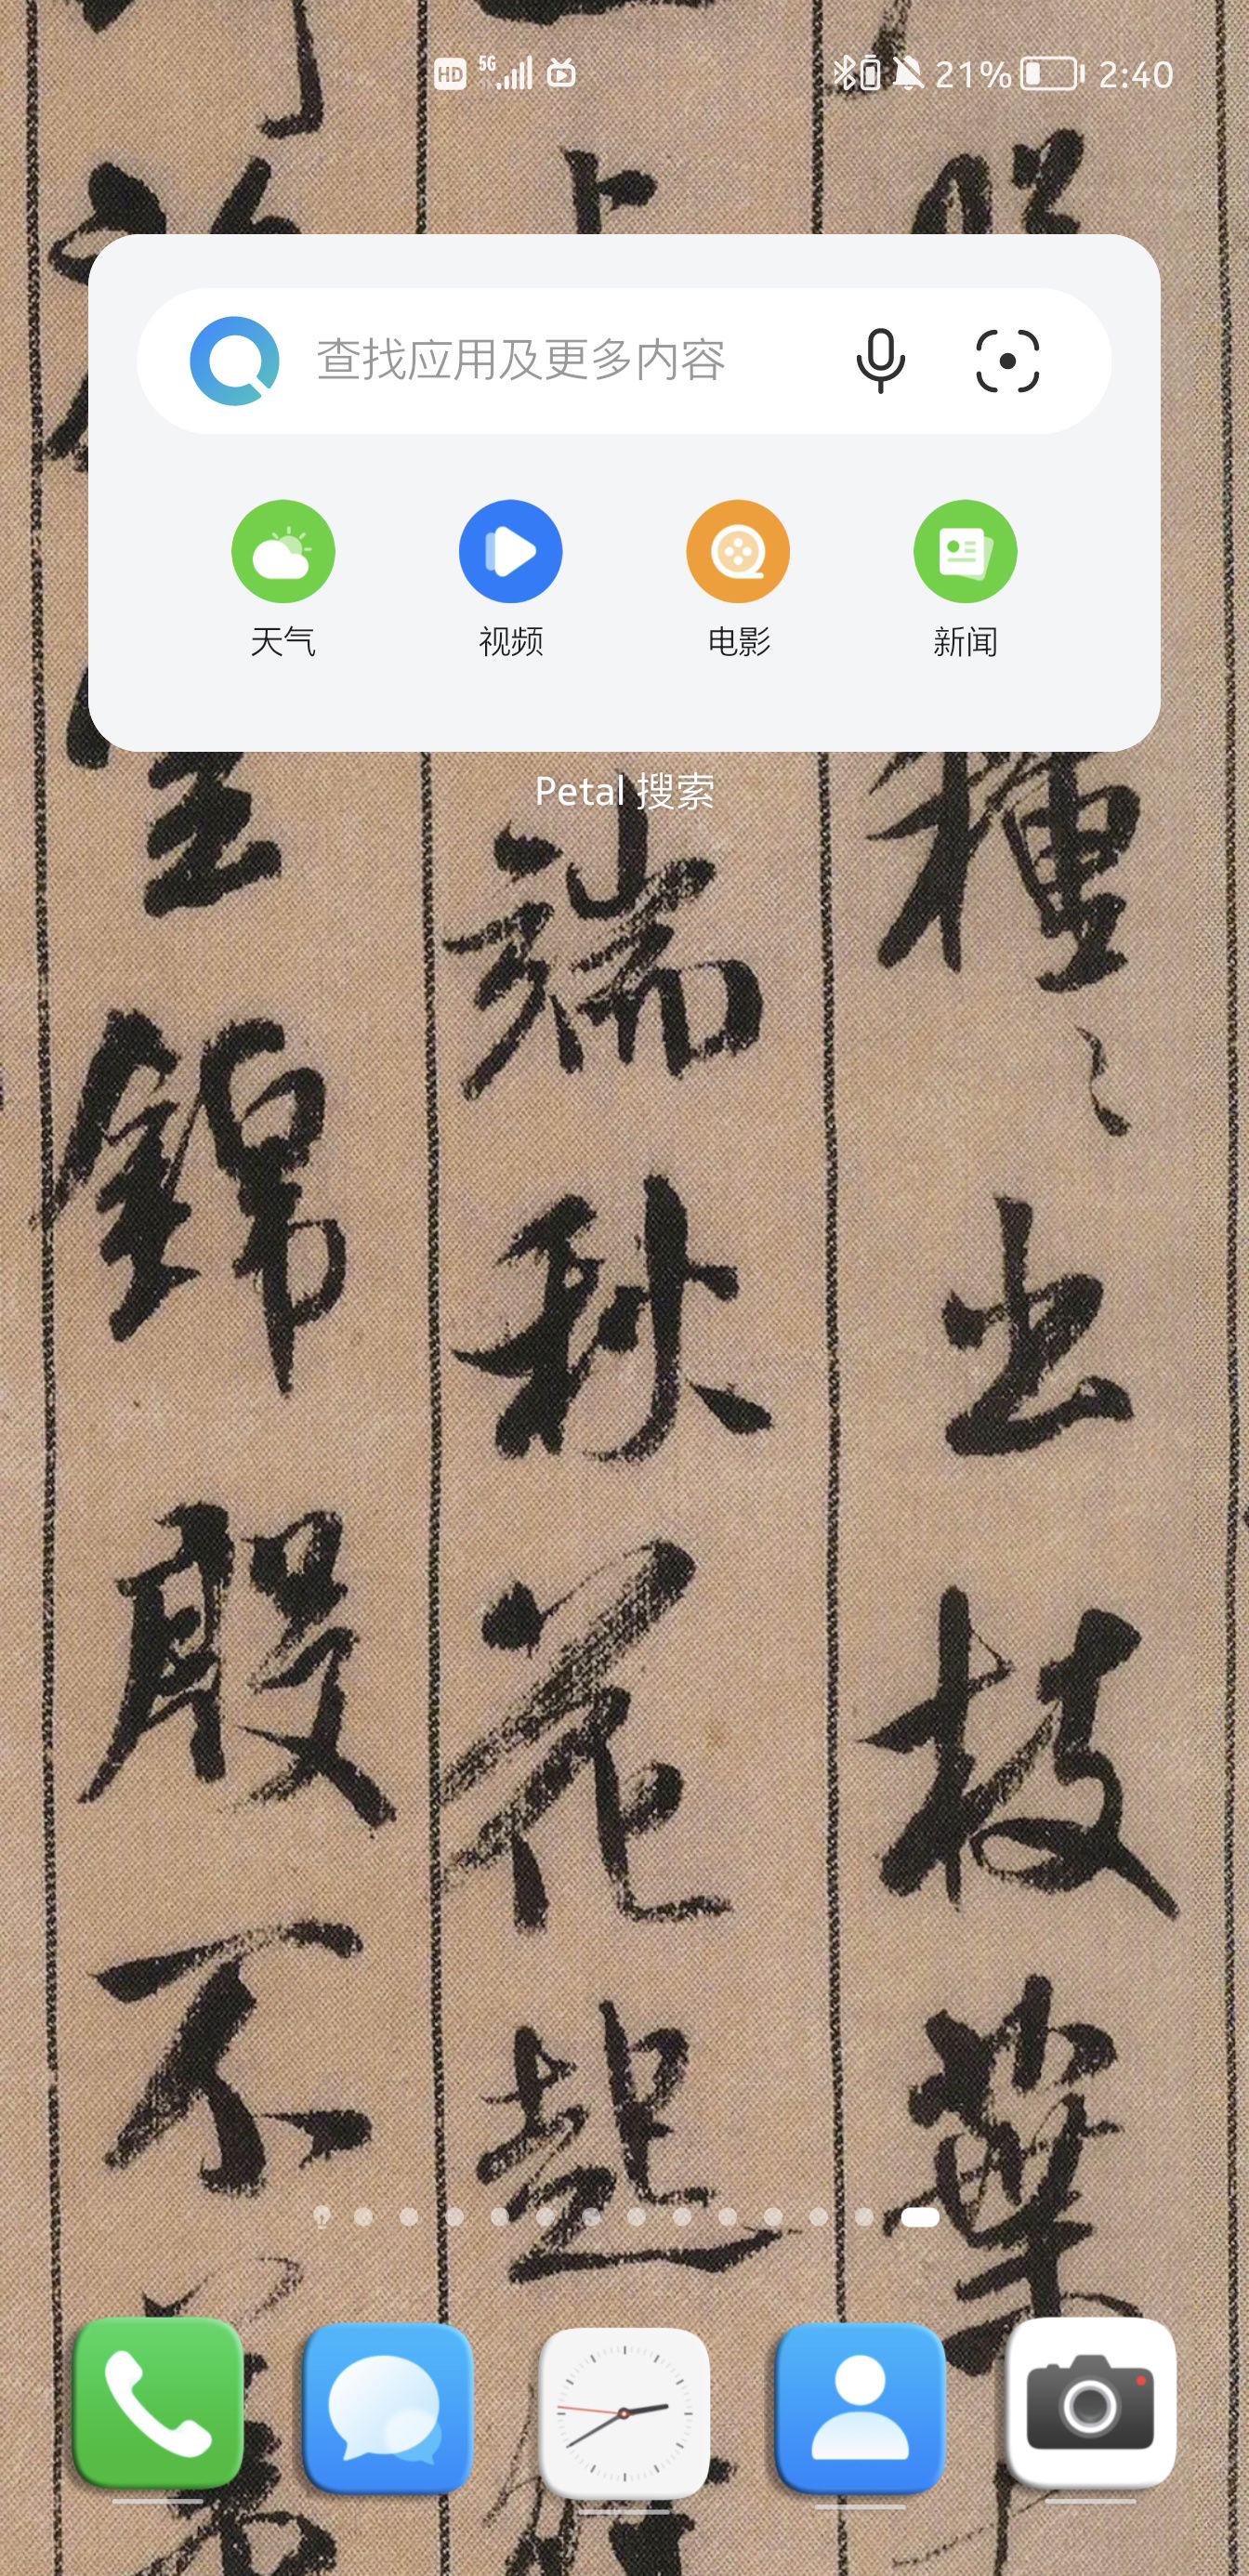 HD 5G 21% 2:40
查找应用及更多内容
天气 视频 电影 新闻
Petal 搜索
種〻出枝葉
上 端秋花起
全錦殷不